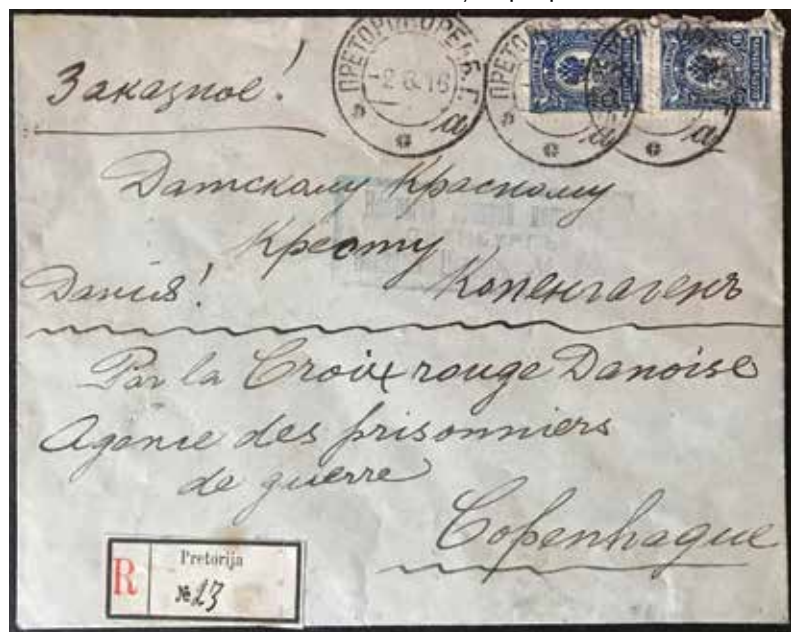 Заказное!
ПРЕТОРІЯ ОРЕНБ. Г.
-2.6.16
а
Датскому Красному
Кресту
Данія! Копенгагенъ
Par la Croix rouge Danoise
Agence des prisonniers
de guerre
Copenhague
R Pretorija
№ 23